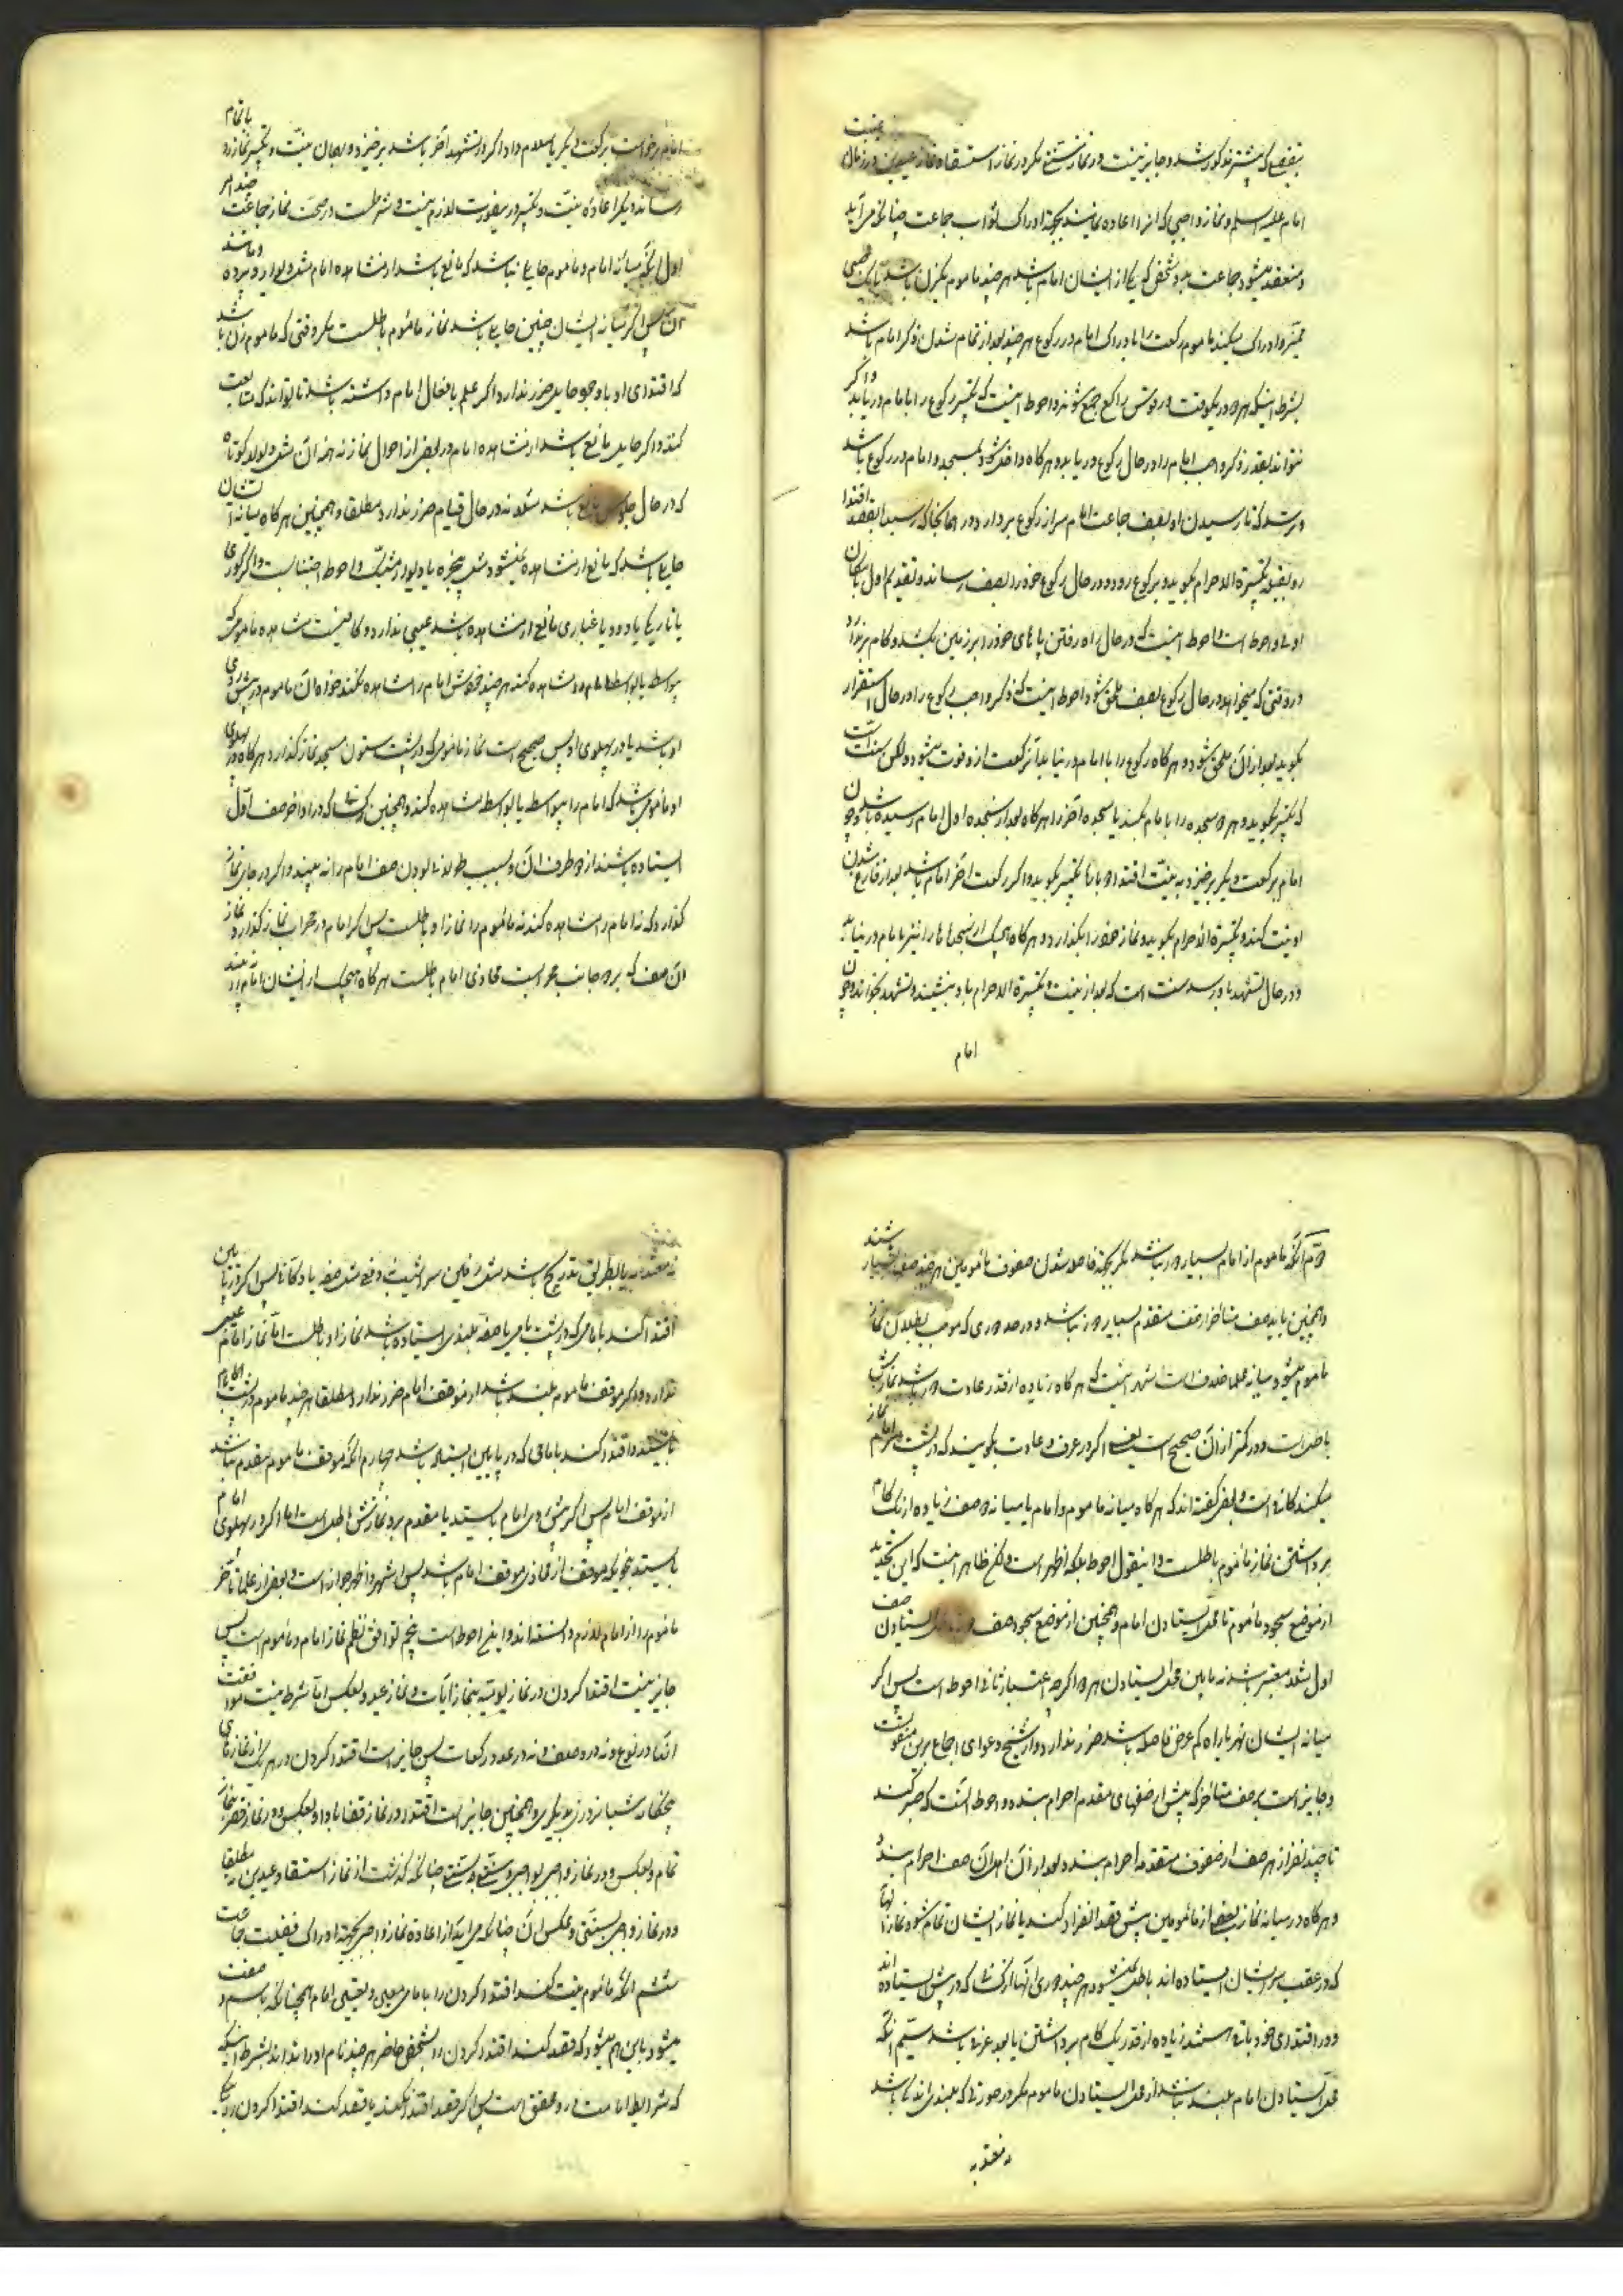 بتفصیلی که پیشتر مذکور شد و جایز نیست در نماز سنتی مگر در نماز استسقا و نماز عیدین در زمان غیبت
امام علیه السلم و نماز واجبی که انرا اعاده نمایند بجهة ادراک ثواب جماعت چنانکه می آید
و منعقد میشود جماعت بدو شخص که یکی از ایشان امام باشد هر چند ماموم یکزن باشد یا یک صبی
ممیز و ادراک میکند ماموم رکعت را با دراک امام در رکوع هر چند بعد از تمام شدن ذکر امام باشد
بشرط اینکه هر دو در یکوقت در قوس راکع جمع شوند و احوط اینست که تکبیر رکوع را با امام دریابد و اگر
نتواند بقدر ذکر واجب امام را در حال رکوع دریابد و هر کاه داخل شود بمسجد و امام در رکوع باشد
و ترسد که تا رسیدن او بصف جماعت امام سر از رکوع بردارد در همانجا که رسید بقصد اقتدا
رو بقبله تکبیرة الاحرام بکوید و برکوع رود و در حال رکوع خود را بصف رساند و تقدیم اول با امکان
اولی و احوط است و احوط اینست که در حال راه رفتن پاهای خود را بر زمین بکشد و کام بر ندارد
در وقتی که میخواهد در حال رکوع بصف ملحق شود و احوط اینست که ذکر واجب رکوع را در حال استقرار
بکوید بعد از آن ملحق شود و هر کاه رکوع را با امام در نیابد آن رکعت از او فوت میشود ولکن سنت است
که تکبیر بکوید و هر دو سجده را با امام بکند یا سجده آخر را هر کاه بعد از سجده اول امام رسیده باشد و چون
امام برکعت دیگر برخیزد به نیت اقتدا دوباره تکبیر بکوید و اگر رکعت آخر امام باشد بعد از فارغ شدن
او نیت کند و تکبیرة الاحرام بکوید و نماز خود را بکذارد و هر کاه هیچیک از سجدها را نیز با امام در نیابد
و در حال تشهد باو رسد سنت است که بعد از نیت و تکبیرة الاحرام با او بنشیند و تشهد بخواند و چون
امام
امام برخواست برکعت دیگر یا سلام داد اگر در تشهد آخر باشد برخیزد و بهمان نیت و تکبیر نماز را باتمام
رساند و دیگر اعاده نیت و تکبیر در اینصورت لازم نیست و شرطست در صحت نماز جماعت چند امر
اول آنکه میانه امام و ماموم حایلی نباشد که مانع باشد از مشاهده امام مثل دیوار و پرده و مانند
آن پس اگر میانه ایشان چنین حایلی باشد نماز ماموم باطلست مگر وقتی که ماموم زن باشد
که اقتدای او با وجود حایل ضرر ندارد اگر علم بافعال امام داشته باشد تا بتواند که متابعت
کند و اگر حایل مانع باشد از مشاهده امام در بعض از احوال نماز نه همه آن مثل دیوار کوتاه
که در حال جلوس مانع باشد نه در حال قیام ضرر ندارد مطلقا و همچنین هر کاه میانه ایشان
حایلی باشد که مانع از مشاهده نمیشود مثل پنجره یا دیوار مشبک و احوط اجتنابست و اگر کوری
یا تاریکی یا دود یا غباری مانع از مشاهده باشد عیبی ندارد و کافیست مشاهده ماموم که
بیواسطه یا بواسطه مشاهده کند هر چند خودش امام را مشاهده نکند خواه آن ماموم در پیش روی
او باشد یا در پهلوی او پس صحیح است نماز مامومی که در پشت ستون مسجد نماز گذارد هر کاه در پهلوی
او مامومی باشد که امام را بیواسطه یا بواسطه مشاهده کند و همچنین کسانیکه در اواخر صف اول
ایستاده باشند از دو طرف آن و بسبب طولانی بودن صف امام را نه بینند و اگر در جای نماز
گذارد که نه امام را مشاهده کند نه ماموم را نماز او باطلست پس اگر امام در محراب نماز گذارد نماز
آن صف که بر دو جانب محرابست محاذی امام باطلست هر کاه هیچیک از ایشان امام را نه بینند
دوّم آنکه ماموم از امام بسیار دور نباشد مگر بجهة فاصله شدن صفوف مامومین هر چند صف بسیار باشند
و همچنین باید صف متاخر از صف متقدم بسیار دور نباشد و در حد دوری که موجب بطلان نماز
ماموم میشود میانه علما خلاف است اشهر اینست که هر کاه زیاده از قدر عادت دور باشد نمازش
باطل است و در کمتر از آن صحیح است یعنی اگر در عرف و عادت بکویند که در پشت سر امام نماز
میکند کافی است و بعض گفته اند که هر کاه میانه ماموم و امام یا میانه دو صف زیاده از یک کام
برداشتن نماز ماموم باطلست و اینقول احوط بلکه اظهر است ولکن ظاهر اینست که این تحدید
از موضع سجود ماموم تا محل ایستادن امام و همچنین از موضع سجود صف ایستادن صف
اول بقدر معتبر باشد نه مابین محل ایستادن هر دو اگر چه اعتبار ثانی احوط است پس اگر
میانه ایشان نهر یا راه کم عرض فاصله باشد ضرر ندارد و از شیخ دعوای اجماع برین منقولست
و جایز است بر صف متاخر که پیش از صفهای مقدم احرام بندد و احوط آنست که صبر کنند
تا چند نفر از هر صف از صفوف متقدمه احرام بندد بعد از آن اهل آن صف احرام بندد
و هر کاه در میانه نماز بعضی از مامومین پیش قصد انفراد کنند یا نماز ایشان تمام شود نماز آنها
که در عقب سر ایشان ایستاده اند باطل نمیشود هر چند دوری آنها از کسانیکه در پیش ایستاده اند
و در اقتدای خود باقی هستند زیاده از قدر یک کام برداشتن یا بعد عرفی باشد سیّم آنکه
محل ایستادن امام بلند نباشد از محل ایستادن ماموم مگر در صورتی که بلندی اندکی باشد
نه معتد به
نه معتد به یا بطریق تدریج باشد مثل زمین سراشیب نه دفعی مثل صفه یا دکان پس اگر در پائین
اقتدا کند بامامی که در پشت بامی یا صفه بلندی ایستاده باشد نماز او باطلست اما نماز امام عیبی
ندارد و اگر موقف ماموم بلند باشد از موقف امام ضرر ندارد مطلقا هر چند ماموم در پشت بام
بایستد و اقتدا کند بامامی که در پایین ایستاده باشد چهارم آنکه موقف ماموم مقدم نباشد
از موقف امام پس اگر پیش روی امام بایستد یا مقدم بود نمازش باطل است اما اگر در پهلوی امام
بایستد بنحویکه موقفش از محاذی موقف امام باشد پس اشهر و اظهر جواز است و بعض از علما تاخر
ماموم را از امام لازم دانسته اند و این احوط است پنجم توافق نظم نماز امام و ماموم است پس
جایز نیست اقتدا کردن در نماز یومیه بنماز آیات و نماز عید و بعکس اما شرط نیست موافقت
آنها در نوع و نه در وصف و نه در عدد رکعات پس جایز است اقتدا کردن در هر یک از نمازهای
پنجکانه شبانروزی بدیگری و همچنین جایز است اقتدا در نماز قضا بادا و بعکس و در نماز قصر بنماز
تمام و بعکس و در نماز واجبی بواجبی و سنتی به سنتی چنانکه گذشت از نماز استسقا و عیدین مطلقا
و در نماز واجبی بسنتی و عکس آن چنانکه می آید از اعاده نماز واجبی بجهة ادراک فضیلت جماعت
ششم آنکه ماموم نیت کند اقتدا کردن را بامامی معین و تعیین امام همچنانکه باسم و صفت
میشود باین هم میشود که قصد کند اقتدا کردن را بشخص حاضر هر چند نام او را نداند بشرط اینکه
که شرایط امامت در او محقق است پس اگر قصد اقتدا نکند یا قصد کند اقتدا کردن را بیکی